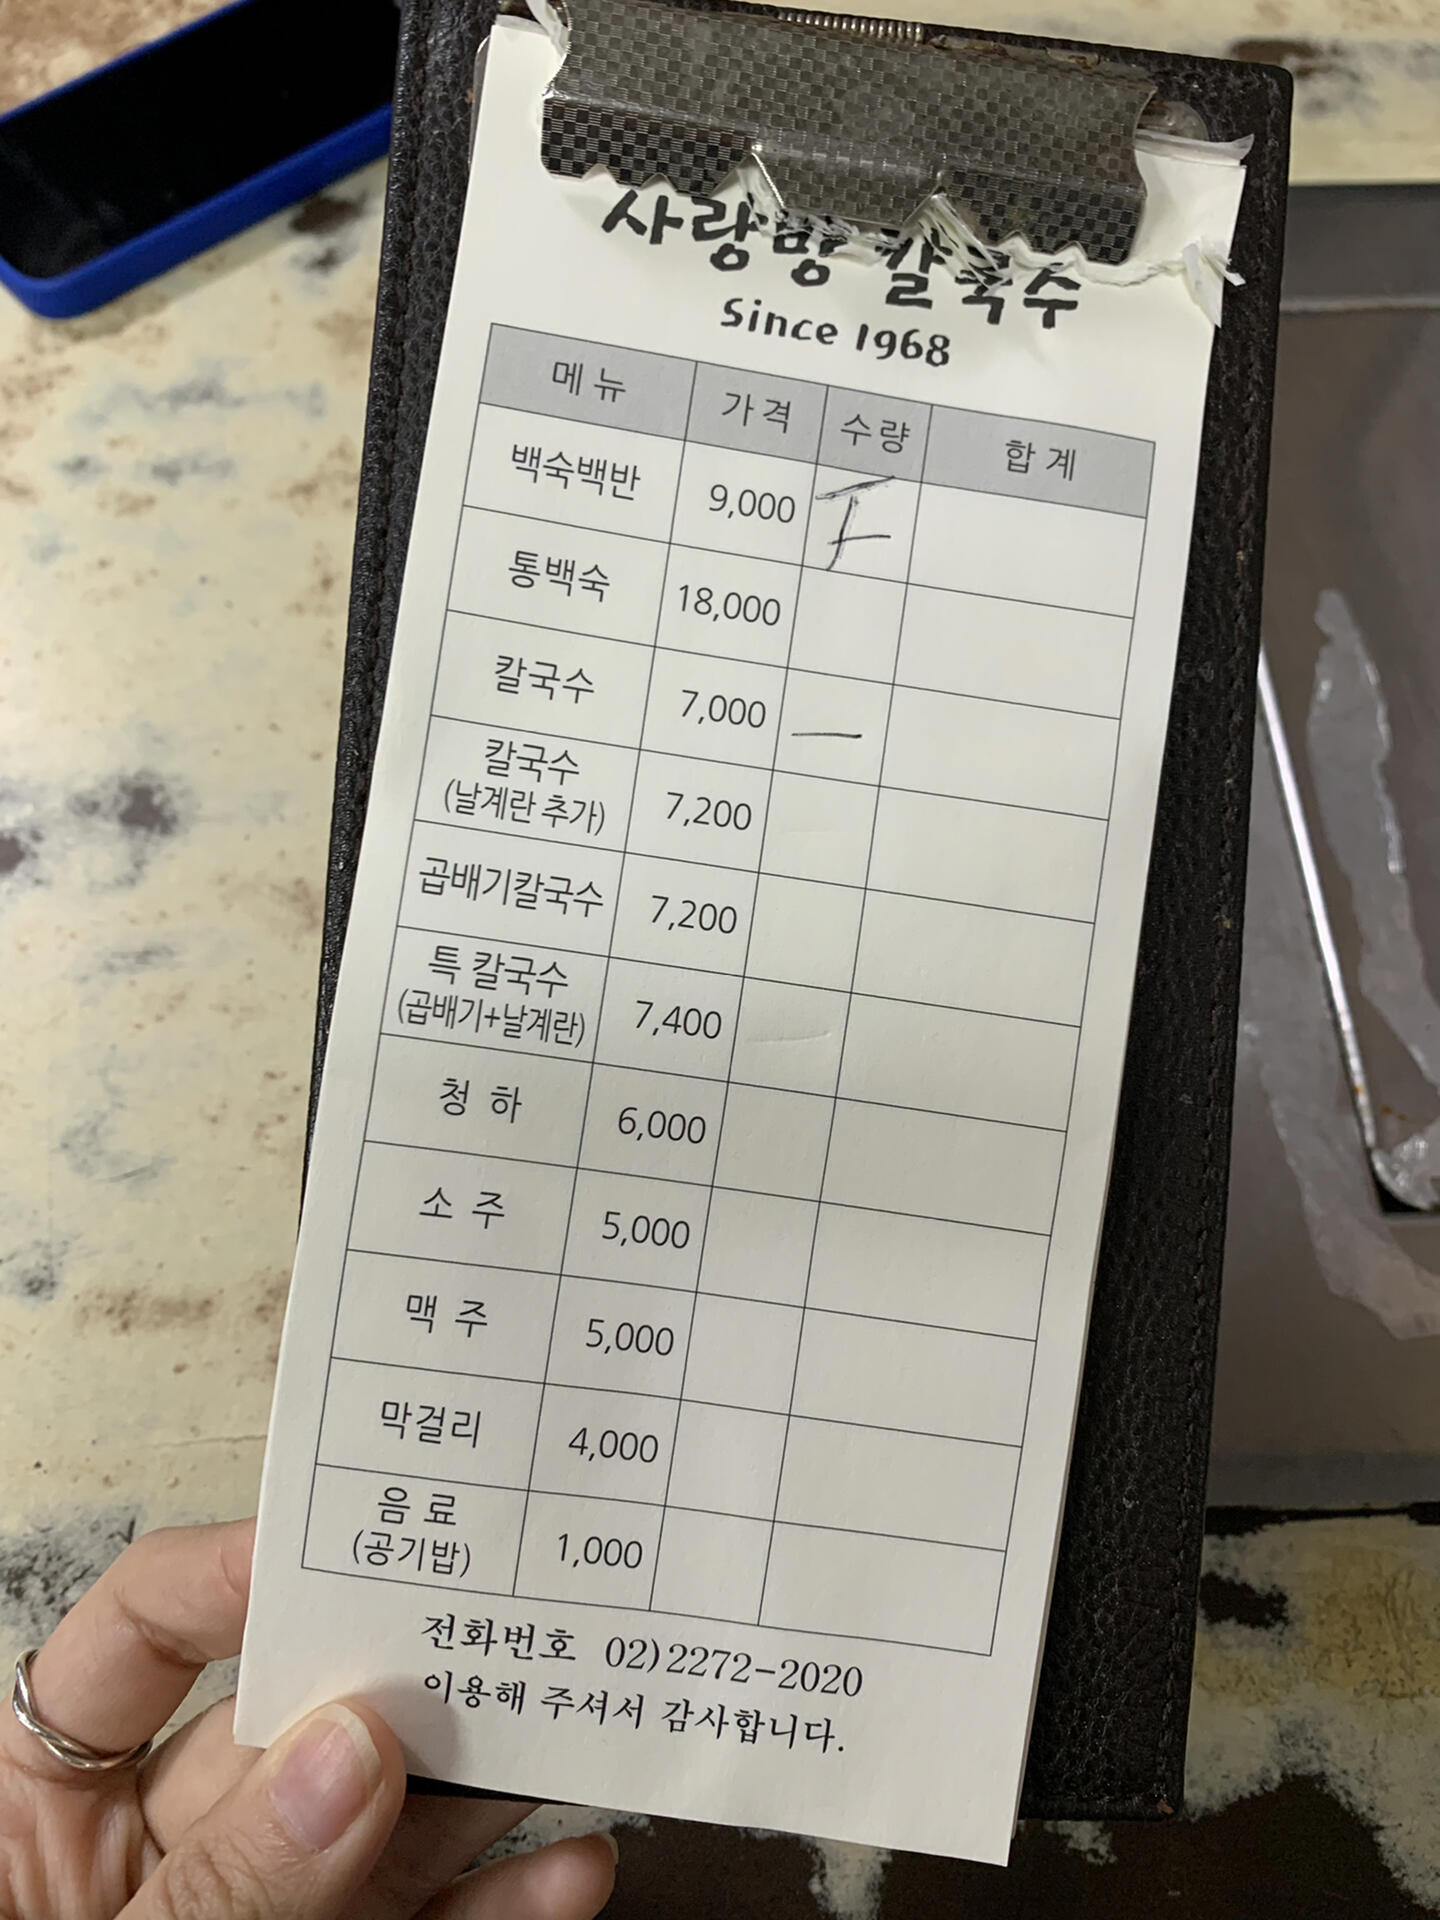 사랑방 칼국수
Since 1968
메뉴 가격 수량 합계
백숙백반 9,000 T
통백숙 18,000
칼국수 7,000 一
칼국수 (날계란 추가) 7,200
곱배기칼국수 7,200
특 칼국수 (곱배기+날계란) 7,400
청 하 6,000
소 주 5,000
맥 주 5,000
막걸리 4,000
음 료 (공기밥) 1,000
전화번호 02)2272-2020
이용해 주셔서 감사합니다.